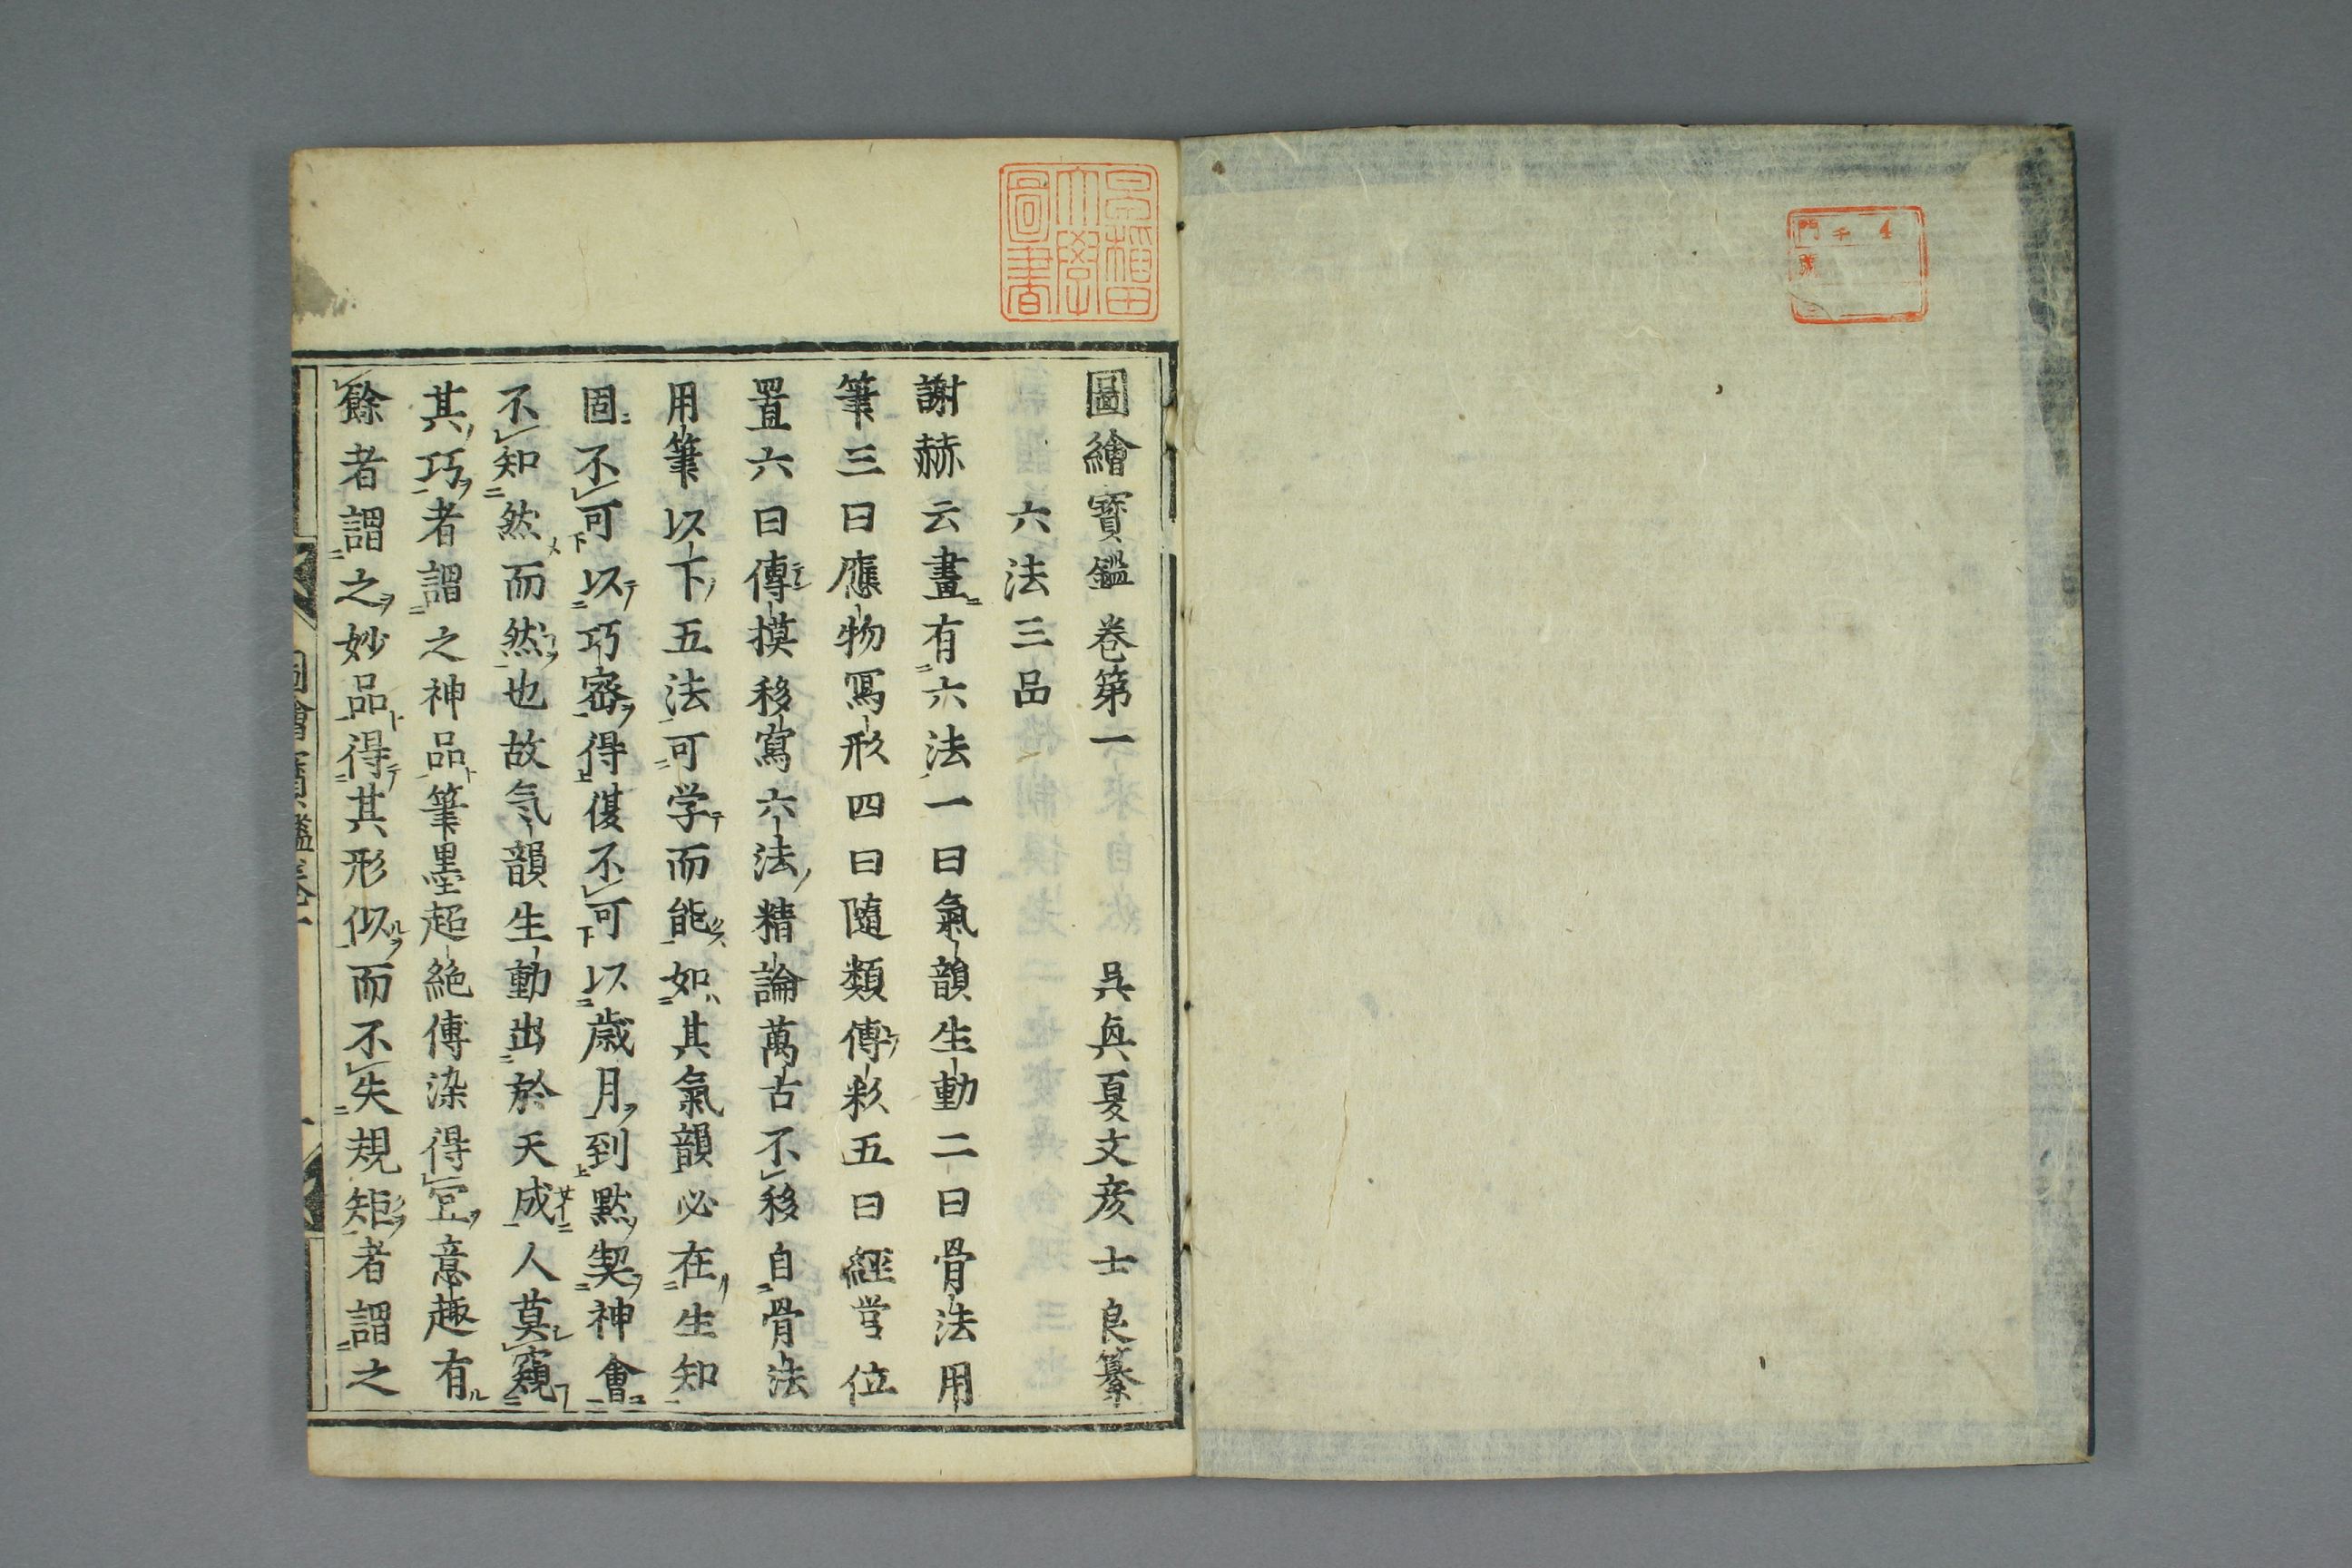 圖繪寶鑑卷第一　吳興夏文彦士良纂
六法三品
謝赫云畫有六法一曰氣韻生動二曰骨法用
筆三曰應物寫形四曰隨類傅彩五曰經営位
置六曰傳摸移寫六法精論萬古不移自骨法
用筆以下五法可学而能如其氣韻必在生知
固不可以巧密得復不可以歳月到黙契神會
不知然而然也故氣韻生動出於天成人莫窺
其巧者謂之神品筆墨超絶傅染得宜意趣有
餘者謂之妙品得其形似而不失規矩者謂之
圖繪寶鑑卷一
早稻田大學圖書
門 チ 4